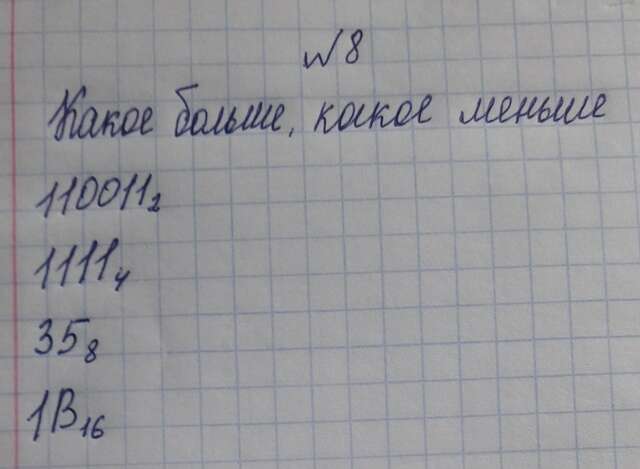 №8
Какое больше, какое меньше
110011₂
1111₄
35₈
1B₁₆